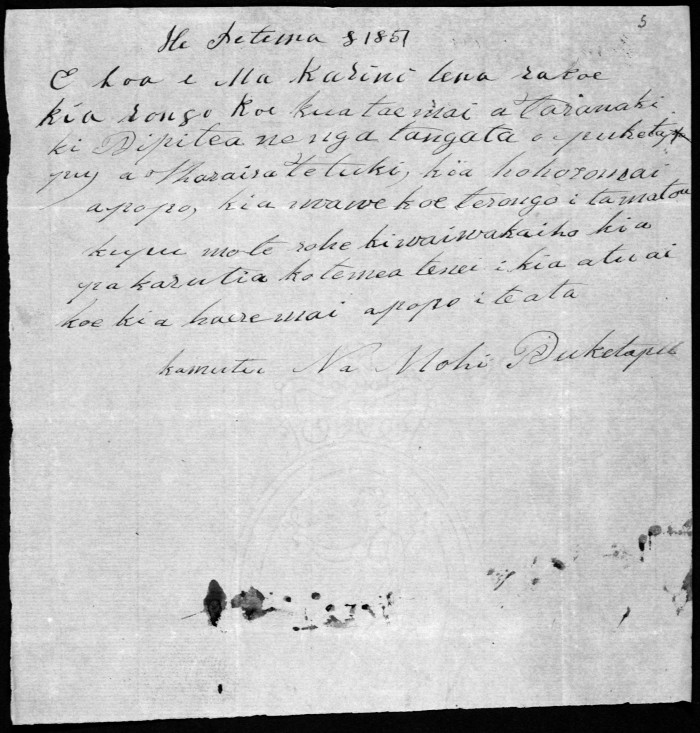 5
He Tetema 8 1851
E hoa e Ma Karini tena ra koe
kia rongo koe kua tae mai a Taranaki
ki Pipitea ne nga tangata o puketa
puy a tetuki, kia hohoro mai
apopo, kia wawe koe te rongo i ta matou
kupu mo te rohe ki waiwakaiho kia
pakarutia ko te mea tenei i kia atu ai
koe kia haere mai apopo i te ata
kamutu Na Mohi Puketapu